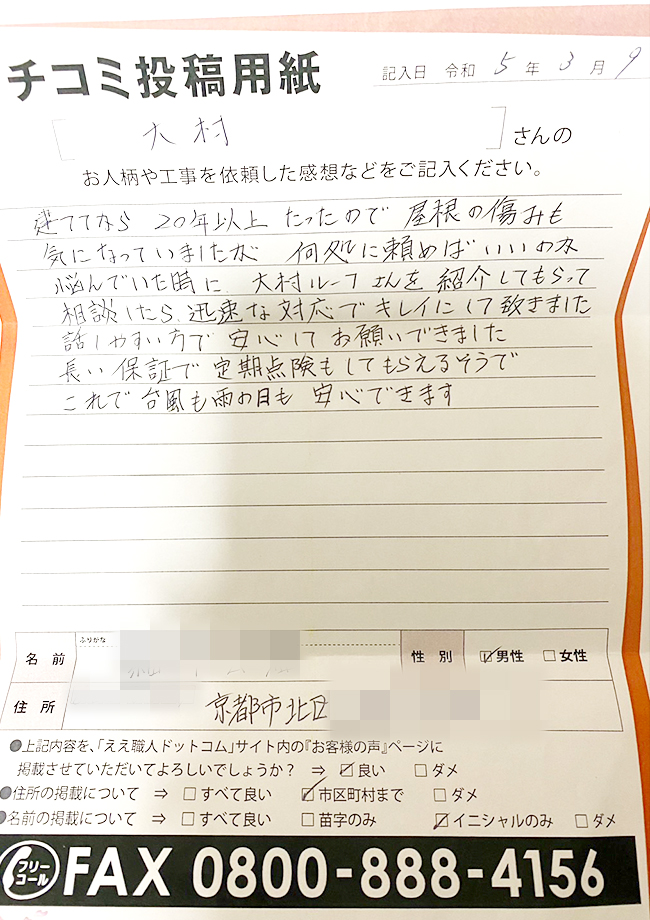 チコミ投稿用紙
記入日 令和 5 年 3 月 9
[ 大村 ] さんの
お人柄や工事を依頼した感想などをご記入ください。
建ててから 20年以上 たったので 屋根の傷みも
気になっていましたが 何処に頼めばいいのか
悩んでいた時に、大村ルーフさんを紹介してもらって
相談したら、迅速な対応でキレイにして致きました
話しやすい方で 安心して お願いできました
長い 保証で 定期点険もしてもらえるそうで
これで 台風も雨の日も 安心できます
ふりがな
名前 性別 ☑男性 □女性
住所 京都市北区
●上記内容を、「ええ職人ドットコム」サイト内の『お客様の声』ページに
掲載させていただいてよろしいでしょうか? ⇒ ☑良い □ダメ
●住所の掲載について ⇒ □すべて良い ☑市区町村まで □ダメ
●名前の掲載について ⇒ □すべて良い □苗字のみ ☑イニシャルのみ □ダメ
フリーコール FAX 0800-888-4156